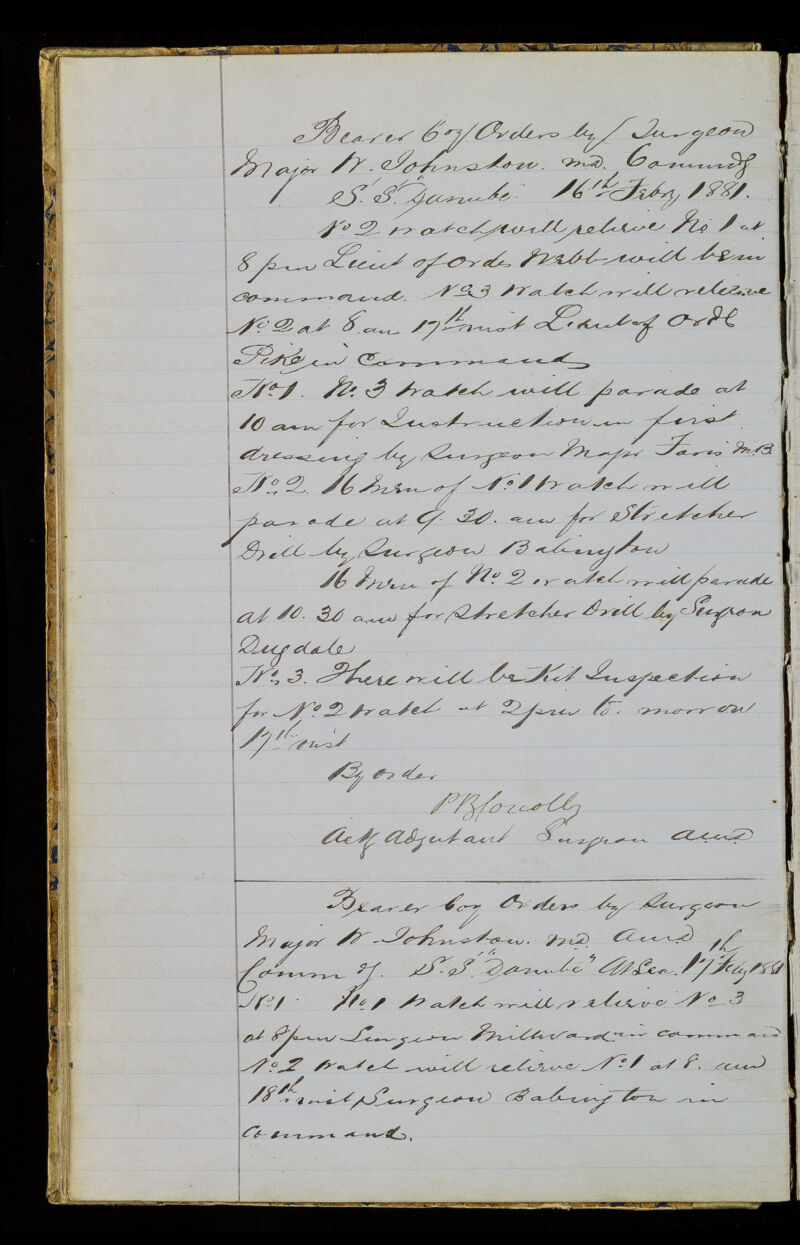 Bearer Coy Orders by Surgeon
Major W. Johnston. M.D. Commndg
S.S. "Danube" 16th Febry 1881.
No 2 watch will relieve No 1 at
8 pm Lieut of Ords Webb will be in
command. No 3 Watch will relieve
No. 2 at 8. am 17th inst Lieut of Ords
Pike in Command
No 1. No. 3 Watch will parade at
10 am for Instruction in first
dressing by Surgeon Major Faris M.B
No. 2. 16 Men of No 1 Watch will
parade at 9. 30. am for Stretcher
Drill by Surgeon Babington
16 Men of No 2 watch will parade
at 10. 30 am for Stretcher Drill by Surgeon
Dugdale
No. 3. There will be Kit Inspection
for No 2 Watch at 2 pm to. morrow
17th inst
By order
P B Conolly
Actg Adjutant Surgeon AMD
Bearer Coy Orders by Surgeon
Major W Johnston. M.D. AMD
Comm dg. S.S. "Danube" At Sea. 17th Feby 1881
No 1. No 1 Watch will relieve No 3
at 8 pm Surgeon Millward in command
No 2 Watch will relieve No. 1 at 8. am
18th inst Surgeon Babington in
Command.